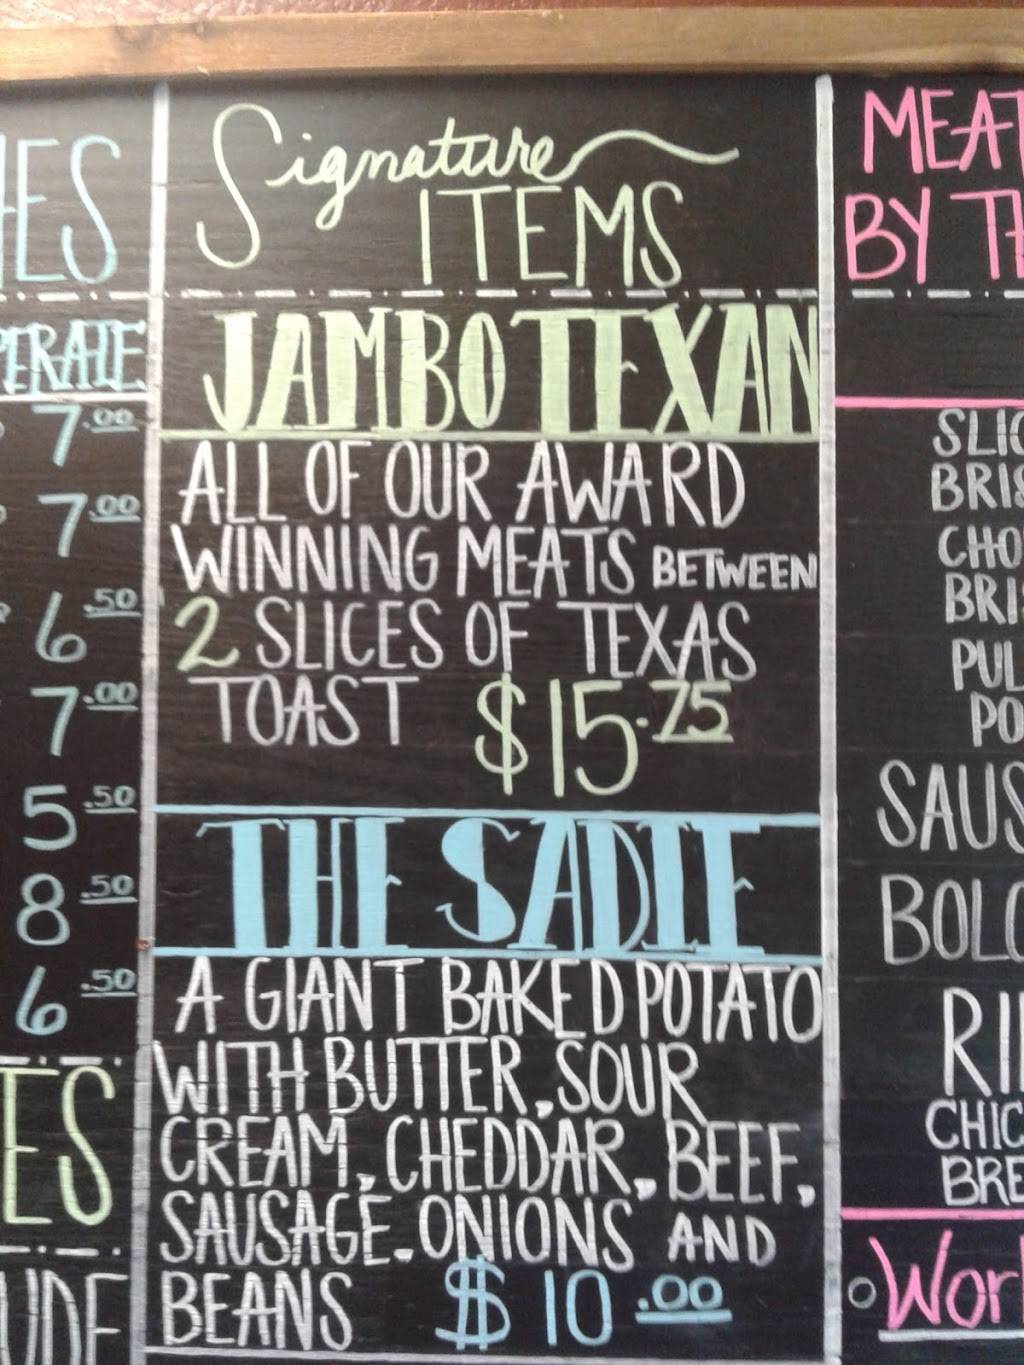 HES
PERATE
7.00
7.00
6.50
7.00
5.50
8.50
6.50
ES
UDE
Signature
ITEMS
JAMBO TEXAN
ALL OF OUR AWARD
WINNING MEATS BETWEEN
2 SLICES OF TEXAS
TOAST $15.75
THE SADIE
A GIANT BAKED POTATO
WITH BUTTER, SOUR
CREAM, CHEDDAR, BEEF,
SAUSAGE, ONIONS AND
BEANS $10.00
MEAT
BY TH
SLIC
BRIS
CHO
BRIS
PUL
PO
SAUS
BOLO
RI
CHIC
BRE
Wor